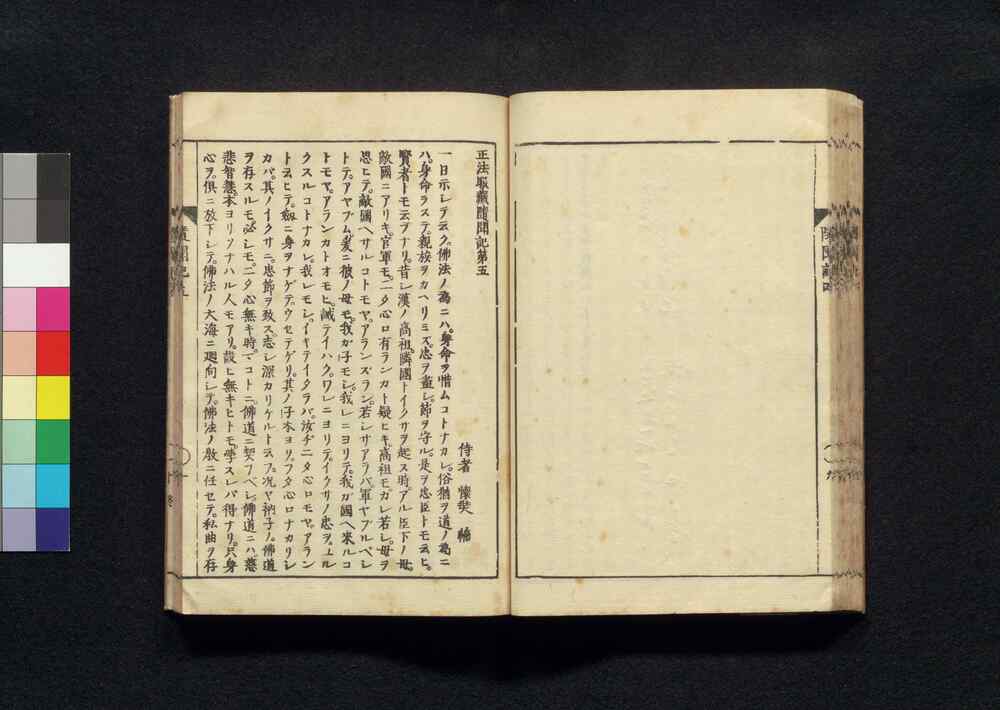 正法眼藏隨聞記第五
侍者 懷奘 編
一日示シテ云ク。佛法ノ為ニハ。身命ヲ惜ムコトナカレ。俗猶ヲ道ノ為ニ
ハ。身命ヲステ。親族ヲカヘリミズ。忠ヲ盡シ。節ヲ守ル。是ヲ忠臣トモ云ヒ。
賢者トモ云フナリ。昔シ漢ノ高祖。隣國トイクサヲ起ス時。アル臣下ノ母。
敵國ニアリキ。官軍モ。二タ心ロ有ランカト疑ヒキ。高祖モガレ若シ。母ヲ
思ヒテ。敵國ヘサルコトモヤ。アランズラン。若シサアラバ。軍ヤブルベシ
トテ。アヤブム。爰ニ彼ノ母モ。我ガ子モシ。我レニヨリテ。我ガ國ヘ來ルコ
トモヤ。アランカトオモヒ。誡テイハク。ワレニヨリテ。イクサノ忠ヲユル
クスルコトナカレ。我レモシ。イキテイタラバ。汝ヂ二タ心ロモヤ。アラン
ト云ヒテ。劔ニ身ヲナゲテ。ウセテゲリ。其ノ子。本ヨリ。フタ心ロナカリシ
カバ。其ノイクサニ。忠節ヲ致ス。志シ深カリケルト云フ。况ヤ衲子ノ。佛道
ヲ存スルモ。必シモ。二タ心無キ時。マコトニ。佛道ニ契フベシ。佛道ニハ。慈
悲智慧。本ヨリソナハル人モアリ。設ヒ無キヒトモ。學スレバ得ナリ。只身
心ヲ。倶ニ放下シテ。佛法ノ大海ニ廻向シテ。佛法ノ敎ニ任セテ。私曲ヲ存